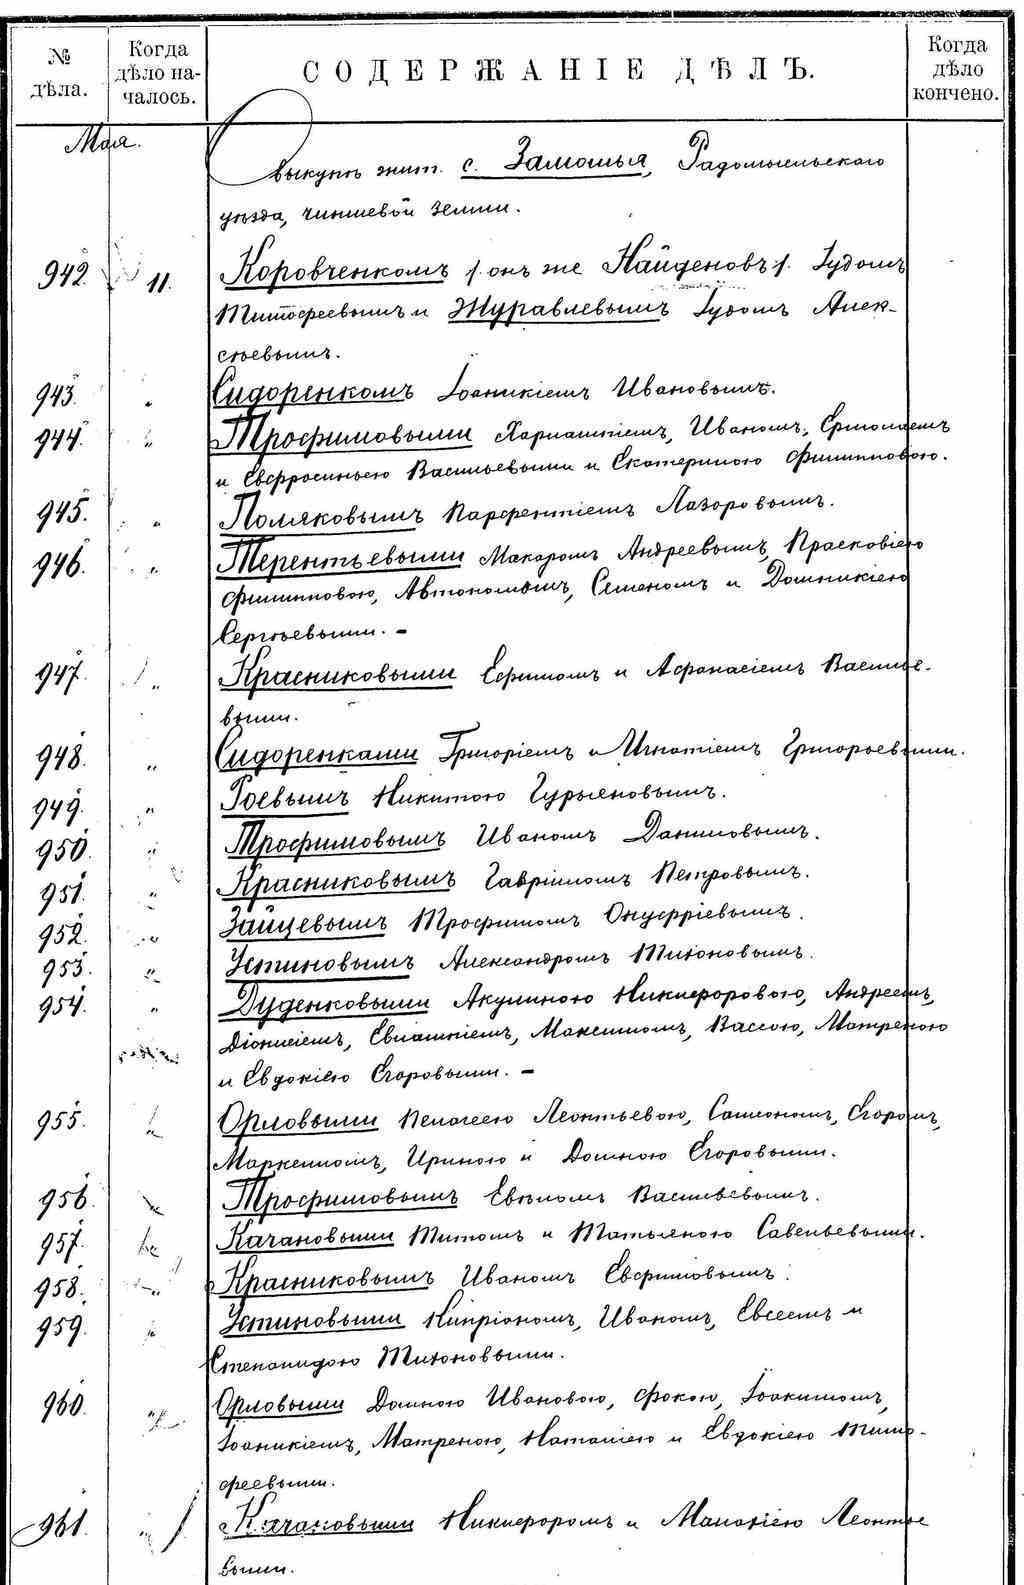 № дѣла.
Когда дѣло началось.
СОДЕРЖАНІЕ ДѢЛЪ.
Когда дѣло кончено.
Мая.
О выкупѣ жит. с. Замошья, Радомысльскаго
уѣзда, чиншевой земли.
942. 11. Коровченкомъ /. онъ же Найденовъ /. Іудомъ
Тимофеевымъ и Журавлевымъ Іудомъ Алек-
сѣевымъ.
943. " Сидоренкомъ Іоаникіемъ Ивановымъ.
944. " Трофимовыми Харлампіемъ, Иваномъ, Ермолаемъ
и Евфросиньею Васильевыми и Екатериною Филипповою.
945. " Поляковымъ Парфентіемъ Лазоровымъ.
946. " Терентьевыми Макаромъ Андреевымъ, Прасковіею
Филипповою, Автономомъ, Семеномъ и Домникіею
Сергѣевыми. –
947. " Красниковыми Ефимомъ и Афанасіемъ Василье-
выми.
948. " Сидоренками Григоріемъ и Игнатіемъ Григорьевыми.
949. " Роевымъ Никитою Гурьяновымъ.
950. " Трофимовымъ Иваномъ Даниловымъ.
951. " Красниковымъ Гавріиломъ Петровымъ.
952. " Зайцевымъ Трофимомъ Онуфріевымъ.
953. " Устиновымъ Александромъ Тихоновымъ.
954. " Дуденковыми Акулиною Никифоровою, Андреемъ,
Діонисіемъ, Евлампіемъ, Максимомъ, Вассою, Матреною
и Евдокіею Егоровыми. –
955. " Орловыми Пелагеею Леонтьевою, Самсономъ, Егоромъ,
Маркеломъ, Ириною и Домною Егоровыми.
956. " Трофимовымъ Евѣломъ Васильевымъ.
957. " Качановыми Титомъ и Татьяною Савельевыми.
958. " Красниковымъ Иваномъ Евфимовымъ.
959. " Устиновыми Кипріаномъ, Иваномъ, Евсеемъ и
Степанидою Тихоновыми.
960. " Орловыми Домною Ивановою, Фокою, Іоакимомъ,
Іоаникіемъ, Матреною, Наталіею и Евдокіею Тимо-
феевыми.
961. " Качановыми Никифоромъ и Маланіею Леонтье
выми.